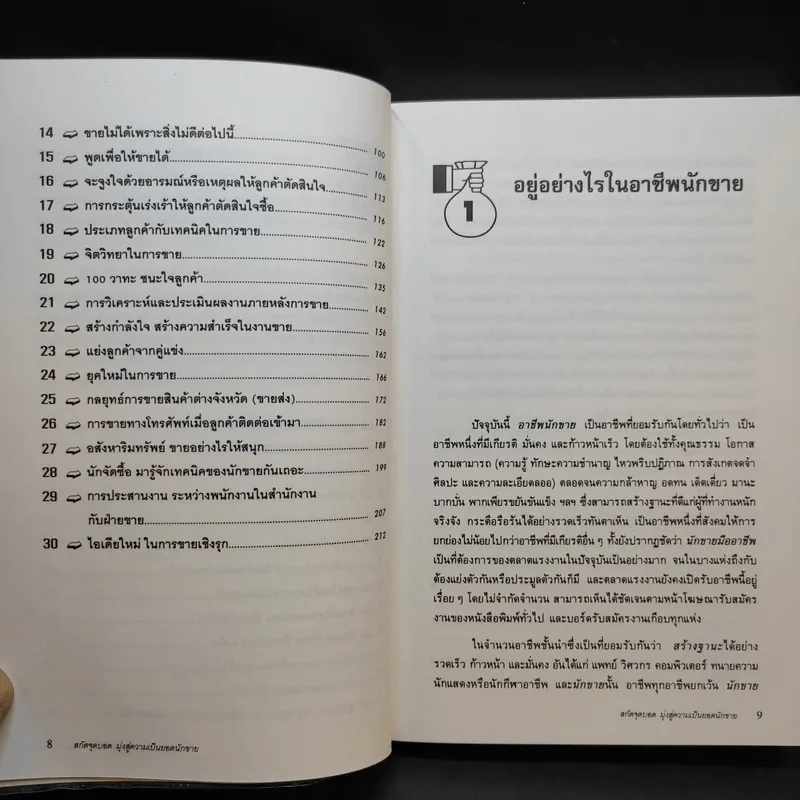 14 ขายไม่ได้เพราะสิ่งไม่ดีต่อไปนี้ 100
15 พูดเพื่อให้ขายได้ 106
16 จะจูงใจด้วยอารมณ์หรือเหตุผลให้ลูกค้าตัดสินใจ 113
17 การกระตุ้นเร่งเร้าให้ลูกค้าตัดสินใจซื้อ 116
18 ประเภทลูกค้ากับเทคนิคในการขาย 122
19 จิตวิทยาในการขาย 126
20 100 วาทะ ชนะใจลูกค้า 135
21 การวิเคราะห์และประเมินผลงานภายหลังการขาย 142
22 สร้างกำลังใจ สร้างความสำเร็จในงานขาย 156
23 แย่งลูกค้าจากคู่แข่ง 162
24 ยุคใหม่ในการขาย 166
25 กลยุทธ์การขายสินค้าต่างจังหวัด (ขายส่ง) 172
26 การขายทางโทรศัพท์เมื่อลูกค้าติดต่อเข้ามา 182
27 อสังหาริมทรัพย์ ขายอย่างไรให้สนุก 188
28 นักจัดซื้อ มารู้จักเทคนิคของนักขายกันเถอะ 199
29 การประสานงาน ระหว่างพนักงานในสำนักงาน
กับฝ่ายขาย 207
30 ไอเดียใหม่ ในการขายเชิงรุก 212
8 สกัดจุดบอด มุ่งสู่ความเป็นยอดนักขาย
1 อยู่อย่างไรในอาชีพนักขาย
ปัจจุบันนี้ อาชีพนักขาย เป็นอาชีพที่ยอมรับกันโดยทั่วไปว่า เป็น
อาชีพหนึ่งที่มีเกียรติ มั่นคง และก้าวหน้าเร็ว โดยต้องใช้ทั้งคุณธรรม โอกาส
ความสามารถ (ความรู้ ทักษะความชำนาญ ไหวพริบปฏิภาณ การสังเกตจดจำ
ศิลปะ และความละเอียดลออ) ตลอดจนความกล้าหาญ อดทน เด็ดเดี่ยว มานะ
บากบั่น พากเพียรขยันขันแข็ง ฯลฯ ซึ่งสามารถสร้างฐานะที่ดีแก่ผู้ที่ทำงานหนัก
จริงจัง กระตือรือร้นได้อย่างรวดเร็วทันตาเห็น เป็นอาชีพหนึ่งที่สังคมให้การ
ยกย่องไม่น้อยไปกว่าอาชีพที่มีเกียรติอื่น ๆ ทั้งยังปรากฏชัดว่า นักขายมืออาชีพ
เป็นที่ต้องการของตลาดแรงงานในปัจจุบันเป็นอย่างมาก จนในบางแห่งถึงกับ
ต้องแย่งตัวกันหรือประมูลตัวกันก็มี และตลาดแรงงานยังคงเปิดรับอาชีพนี้อยู่
เรื่อย ๆ โดยไม่จำกัดจำนวน สามารถเห็นได้ชัดเจนตามหน้าโฆษณารับสมัคร
งานของหนังสือพิมพ์ทั่วไป และบอร์ดรับสมัครงานเกือบทุกแห่ง
ในจำนวนอาชีพชั้นนำซึ่งเป็นที่ยอมรับกันว่า สร้างฐานะได้อย่าง
รวดเร็ว ก้าวหน้า และมั่นคง อันได้แก่ แพทย์ วิศวกร คอมพิวเตอร์ ทนายความ
นักแสดงหรือนักกีฬาอาชีพ และนักขายนั้น อาชีพทุกอาชีพยกเว้น นักขาย
สกัดจุดบอด มุ่งสู่ความเป็นยอดนักขาย 9